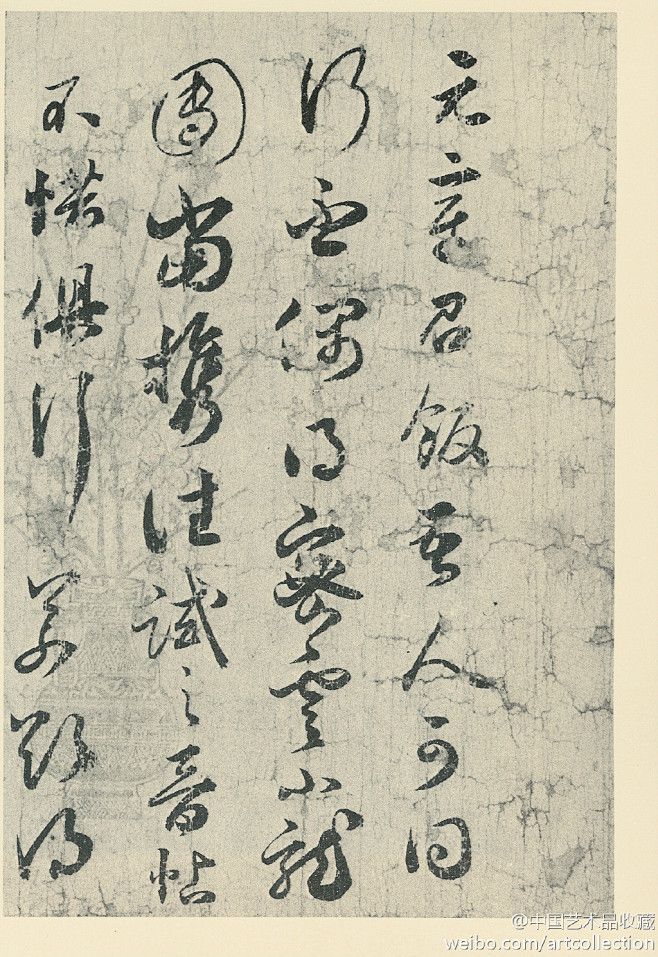 元章召飯吾人可同
行也偶得密雲小龍
團當携往試之音帖
不惜俱行草略得
@中国艺术品收藏
weibo.com/artcollection